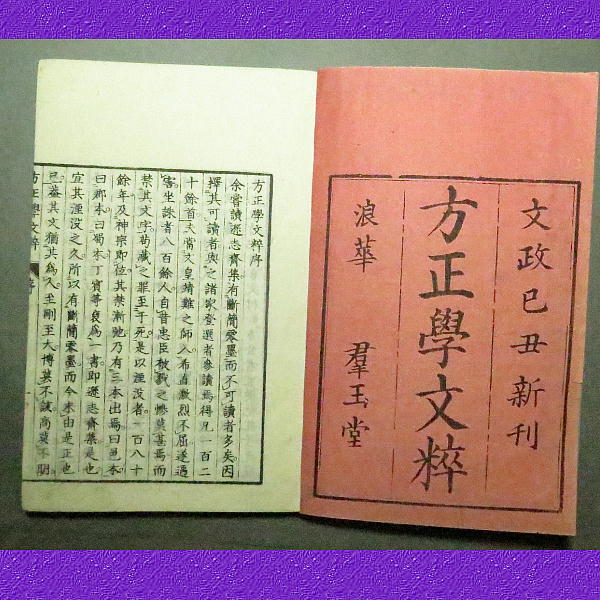 文政己丑新刊
方正學文粹
浪華 羣玉堂
方正學文粹序
余嘗讀遜志齋集有斷簡零墨而不可讀者多矣因
擇其可讀者與之諸家登選者參讀焉得凡一百二
十餘首夫當文皇靖難之師入希直激烈不屈遂遇
害坐誅者八百餘人自昔忠臣被戮之慘莫甚焉而
禁其文字苟藏之罪至于死是以湮没者一百八十
餘年及神宗即位其禁漸弛乃有三本出焉曰邑本
曰郡本曰蜀本丁賓等裒為一書即遜志齋集是也
宜其湮没之久所以有斷簡零墨而今末由是正也
已蓋其文猶其為人至剛至大博莫不該高莫不朗
方正學文粹 序